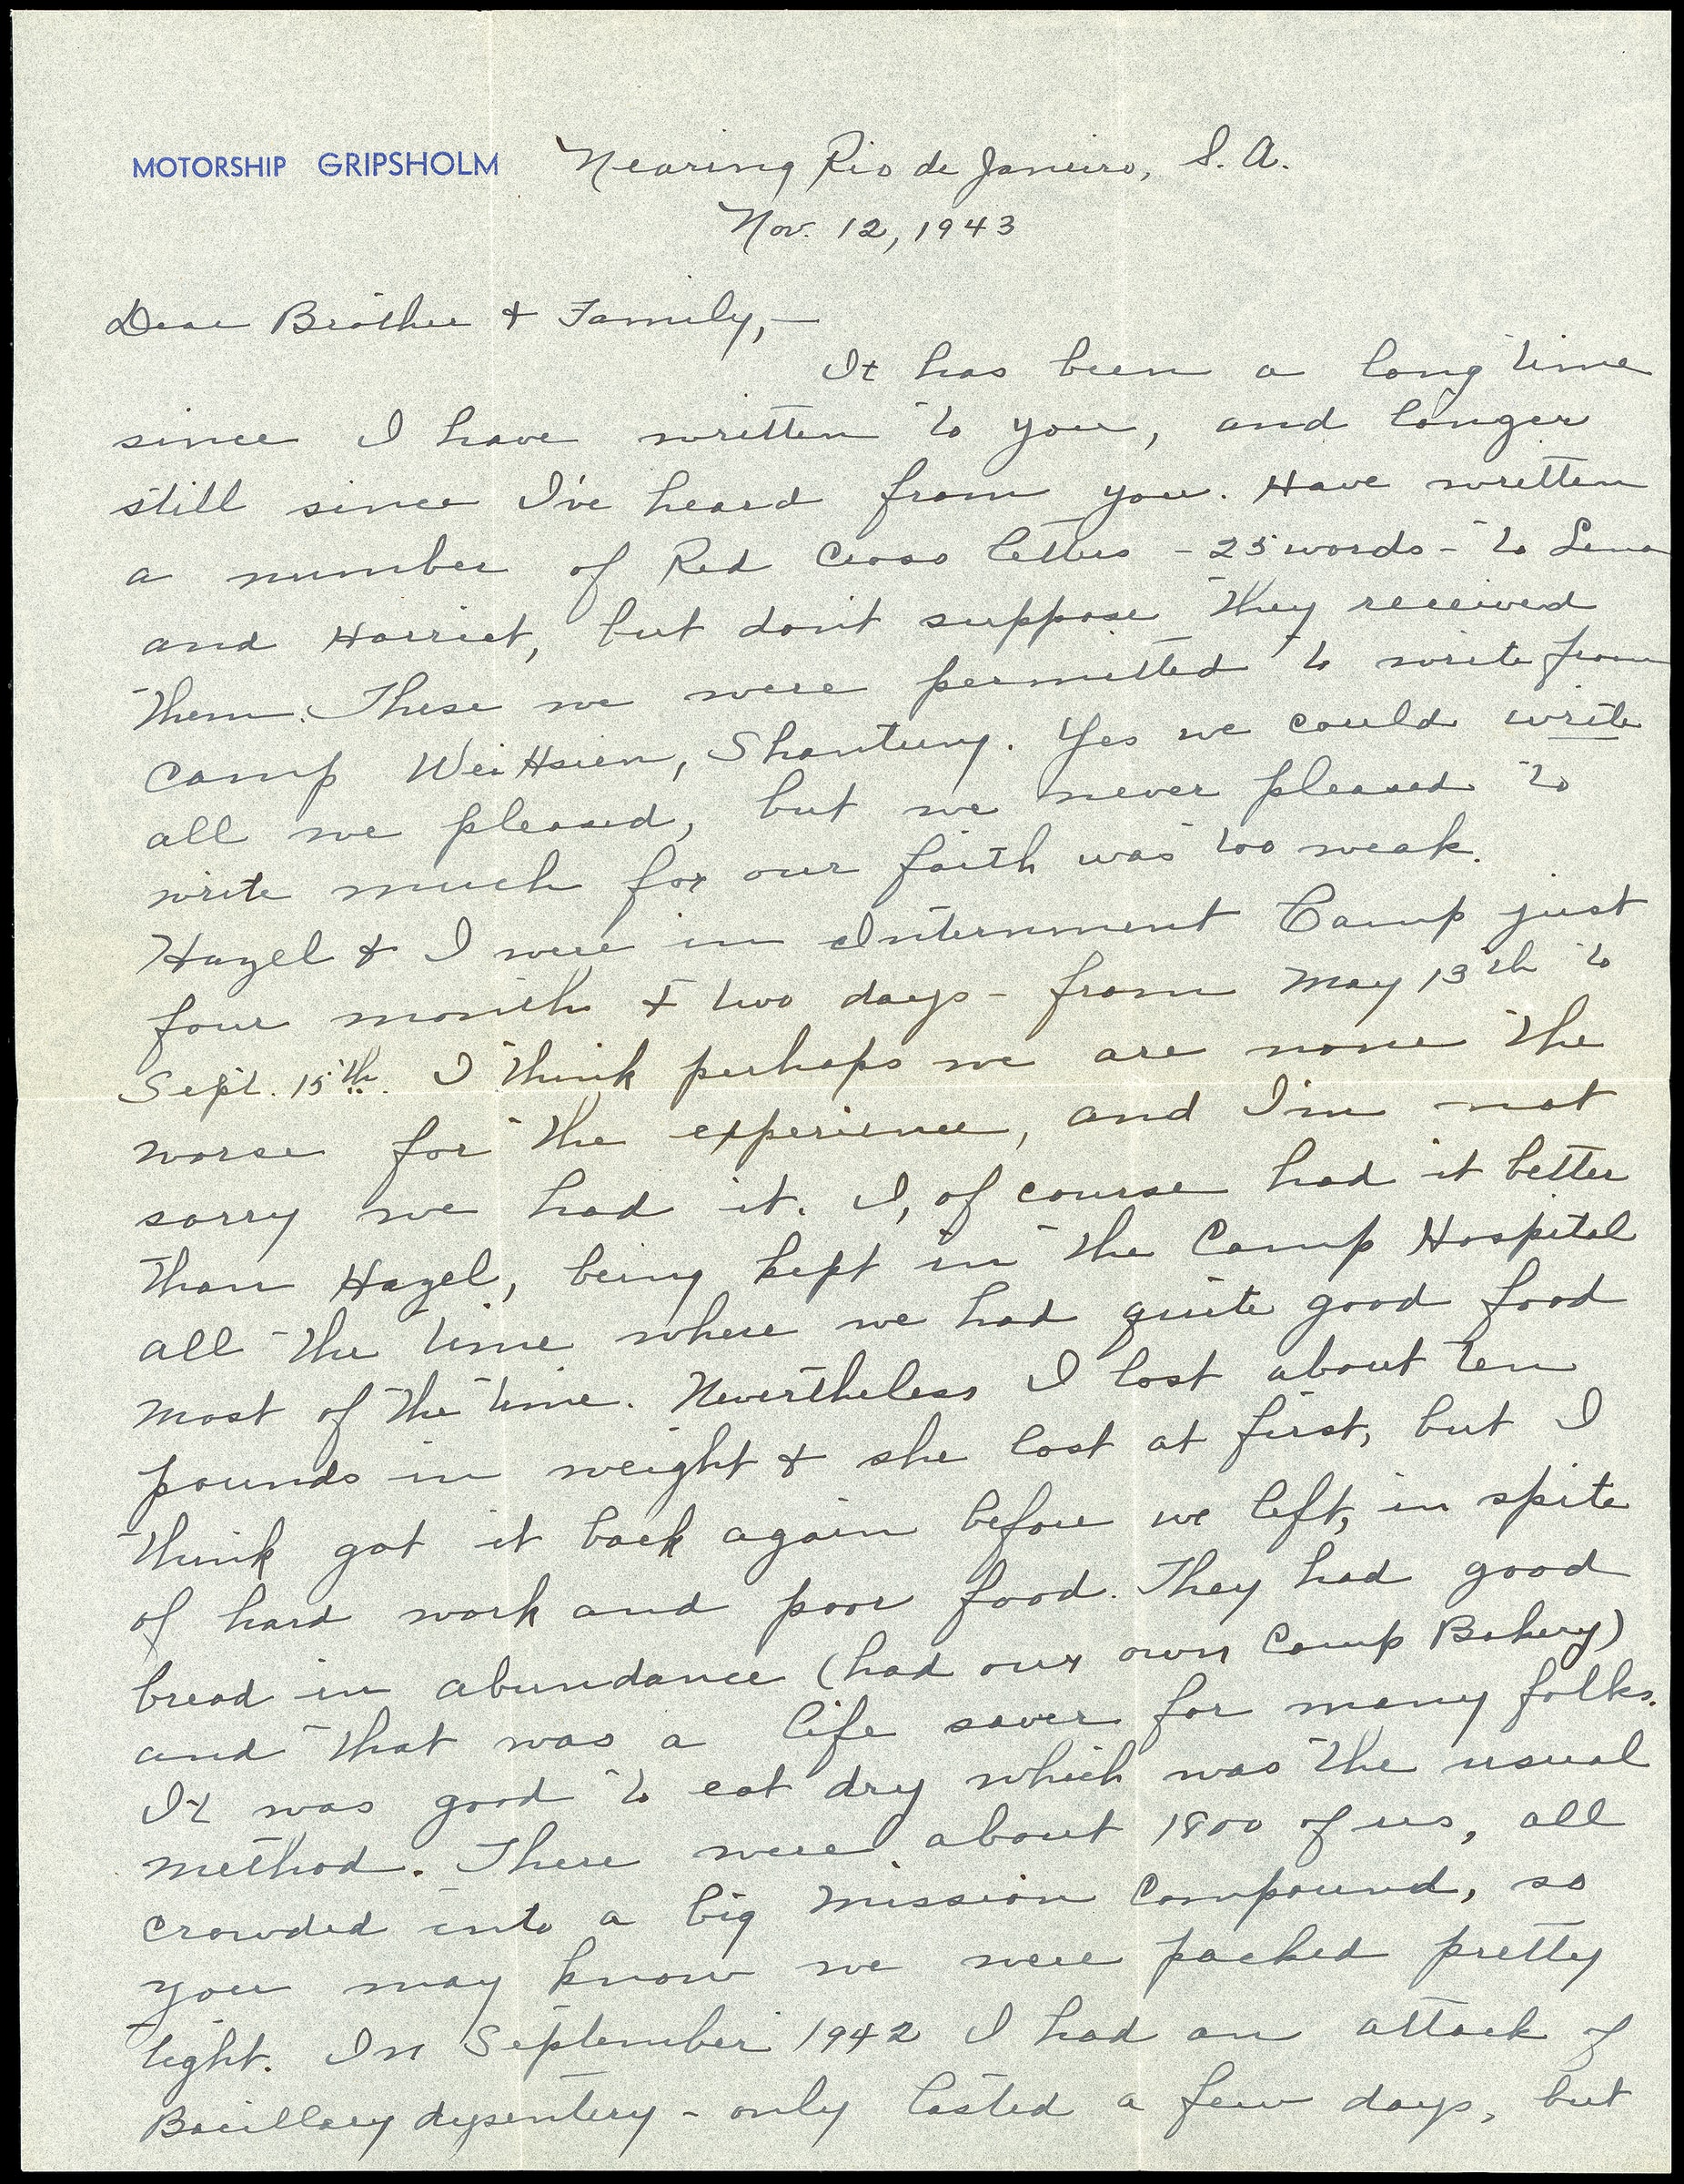 MOTORSHIP GRIPSHOLM Nearing Rio de Janeiro, S. A.
Nov. 12, 1943
Dear Brother & Family,—
It has been a long time
since I have written to you, and longer
still since I've heard from you. Have written
a number of Red Cross letters - 25 words - to Lena
and Harriet, but don't suppose they received
them. These we were permitted to write from
Camp Wei Hsien, Shantung. Yes we could write
all we pleased, but we never pleased to
write much for our faith was too weak.
Hazel & I were in Internment Camp just
four month & two days - from May 13th to
Sept. 15th. I think perhaps we are none the
worse for the experience, and I'm not
sorry we had it. I, of course had it better
than Hazel, being kept in the Camp Hospital
all the time where we had quite good food
most of the time. Nevertheless I lost about ten
pounds in weight & she lost at first, but I
think got it back again before we left, in spite
of hard work and poor food. They had good
bread in abundance (had our own Camp Bakery)
and that was a life saver for many folks.
It was good to eat dry which was the usual
method. There were about 1800 of us, all
crowded into a big Mission Compound, so
you may know we were packed pretty
tight. In September 1942 I had an attack of
Bacillary dysentery - only lasted a few days, but